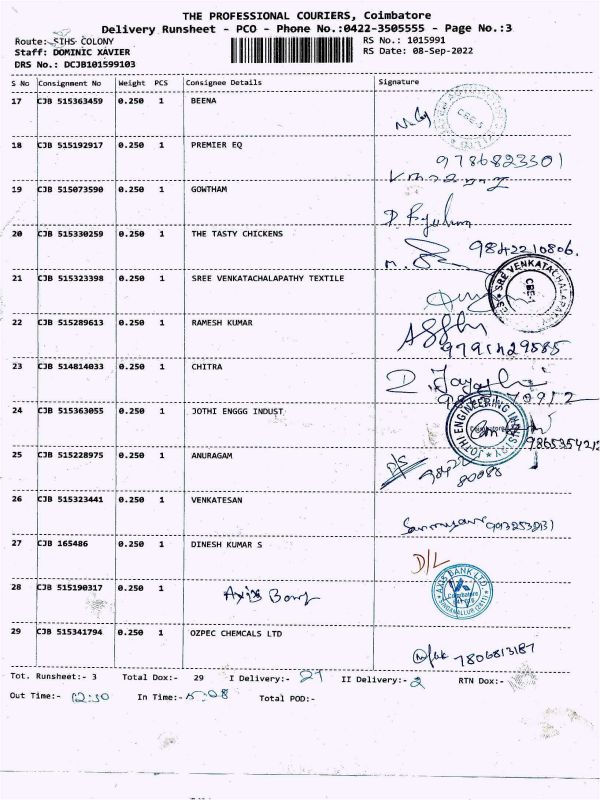 THE PROFESSIONAL COURIERS, Coimbatore
Delivery Runsheet - PCO - Phone No.:0422-3505555 - Page No.:3
Route: SIHS COLONY RS No.: 1015991
Staff: DOMINIC XAVIER RS Date: 08-Sep-2022
DRS No.: DCJB101599103
S No Consignment No Weight PCS Consignee Details Signature
17 CJB 515363459 0.250 1 BEENA
CBE-5
18 CJB 515192917 0.250 1 PREMIER EQ
9786823301
19 CJB 515073590 0.250 1 GOWTHAM
20 CJB 515330259 0.250 1 THE TASTY CHICKENS
9842210806.
21 CJB 515323398 0.250 1 SREE VENKATACHALAPATHY TEXTILE
SRE VENKATACHALAPATHY
CBE-1
22 CJB 515289613 0.250 1 RAMESH KUMAR
23 CJB 514814033 0.250 1 CHITRA
24 CJB 515363055 0.250 1 JOTHI ENGGG INDUST
JOTHI ENGINEERING INDUSTRY
Coimbatore
25 CJB 515228975 0.250 1 ANURAGAM
26 CJB 515323441 0.250 1 VENKATESAN
27 CJB 165486 0.250 1 DINESH KUMAR S
D/L
28 CJB 515190317 0.250 1 Axis Bank
AXIS BANK LTD.
Coimbatore
SINGANALLUR
29 CJB 515341794 0.250 1 OZPEC CHEMCALS LTD
7806813187
Tot. Runsheet:- 3 Total Dox:- 29 I Delivery:- 27 II Delivery:- 2 RTN Dox:-
Out Time:- 12:30 In Time:- 15:08 Total POD:-